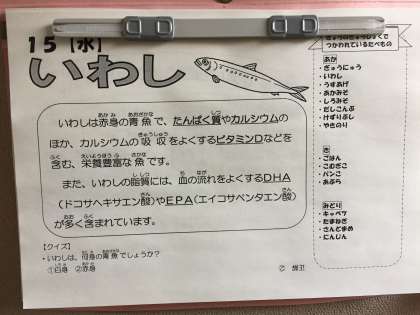 15【水】
いわし
いわしは赤身の青魚で、たんぱく質やカルシウムの
ほか、カルシウムの吸収をよくするビタミンDなどを
含む、栄養豊富な魚です。
また、いわしの脂質には、血の流れをよくするDHA
(ドコサヘキサエン酸)やEPA(エイコサペンタエン酸)
が多く含まれています。
【クイズ】
・いわしは、何身の青魚でしょうか?
①白身 ②赤身
つかわれているたべもの
あか
・ぎゅうにゅう
・いわし
・うすあげ
・あかみそ
・しろみそ
・だしこんぶ
・けずりぶし
・やきのり
き
・ごはん
・こめこ
・パンこ
・あぶら
みどり
・キャベツ
・たまねぎ
・さんどまめ
・にんじん